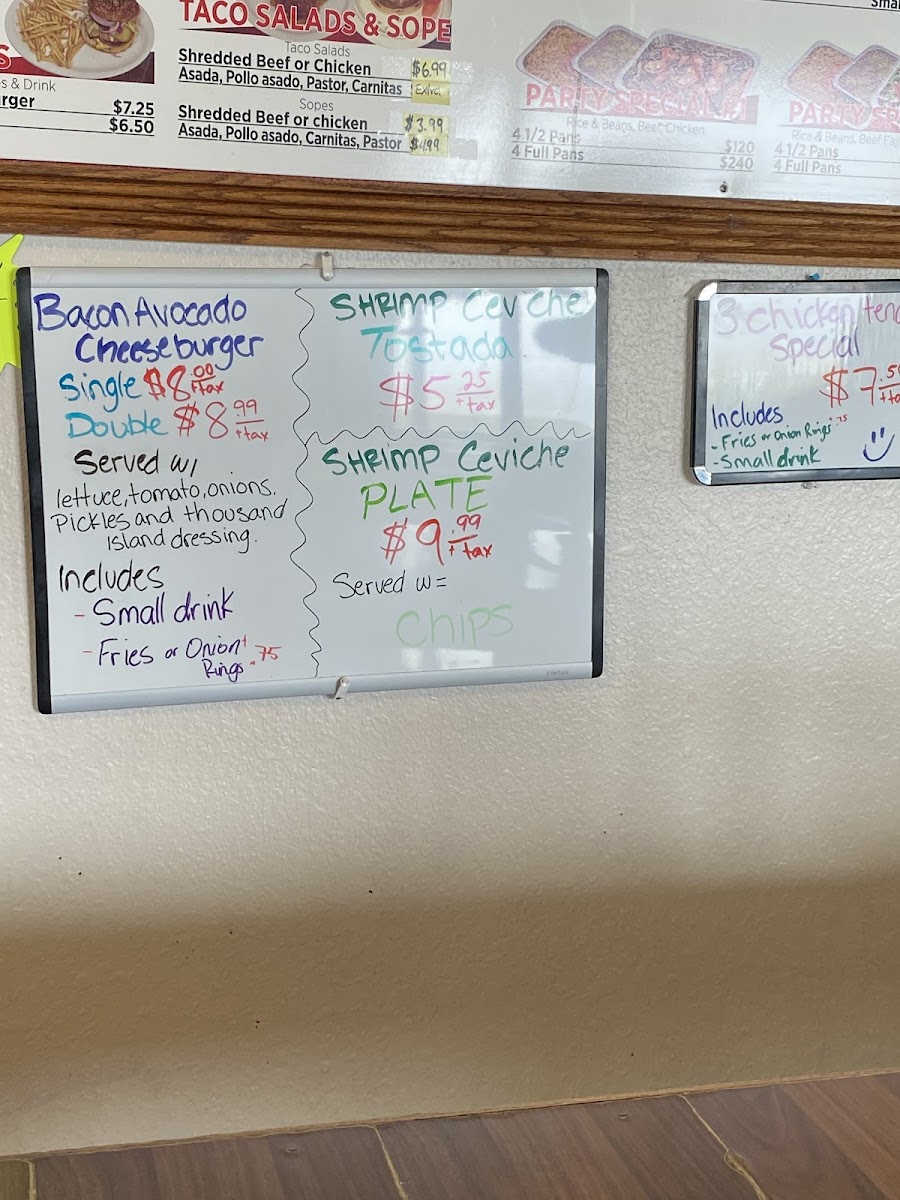 TACO SALADS & SOPE
Taco Salads
Shredded Beef or Chicken $6.99
Asada, Pollo asado, Pastor, Carnitas Extra
Sopes
Shredded Beef or chicken $3.99
Asada, Pollo asado, Carnitas, Pastor $4.99
S
s & Drink
rger $7.25
$6.50
PARTY SPECIAL #1
Rice & Beans, Beef, Chicken
4 1/2 Pans $120
4 Full Pans $240
PARTY SP
Rice & Beans, Beef Faj
4 1/2 Pans
4 Full Pans
Smal
Bacon Avocado
Cheeseburger
Single $8.00 + tax
Double $8.99 + tax
Served w/
lettuce, tomato, onions.
Pickles and thousand
island dressing.
Includes
- Small drink
- Fries or Onion +.75
Rings
SHRIMP Ceviche
Tostada
$5.25 + tax
SHRIMP Ceviche
PLATE
$9.99 + tax
Served w=
Chips
3 chicken tend
Special
$7.50 + ta
Includes
- Fries or Onion Rings +.75
- Small drink